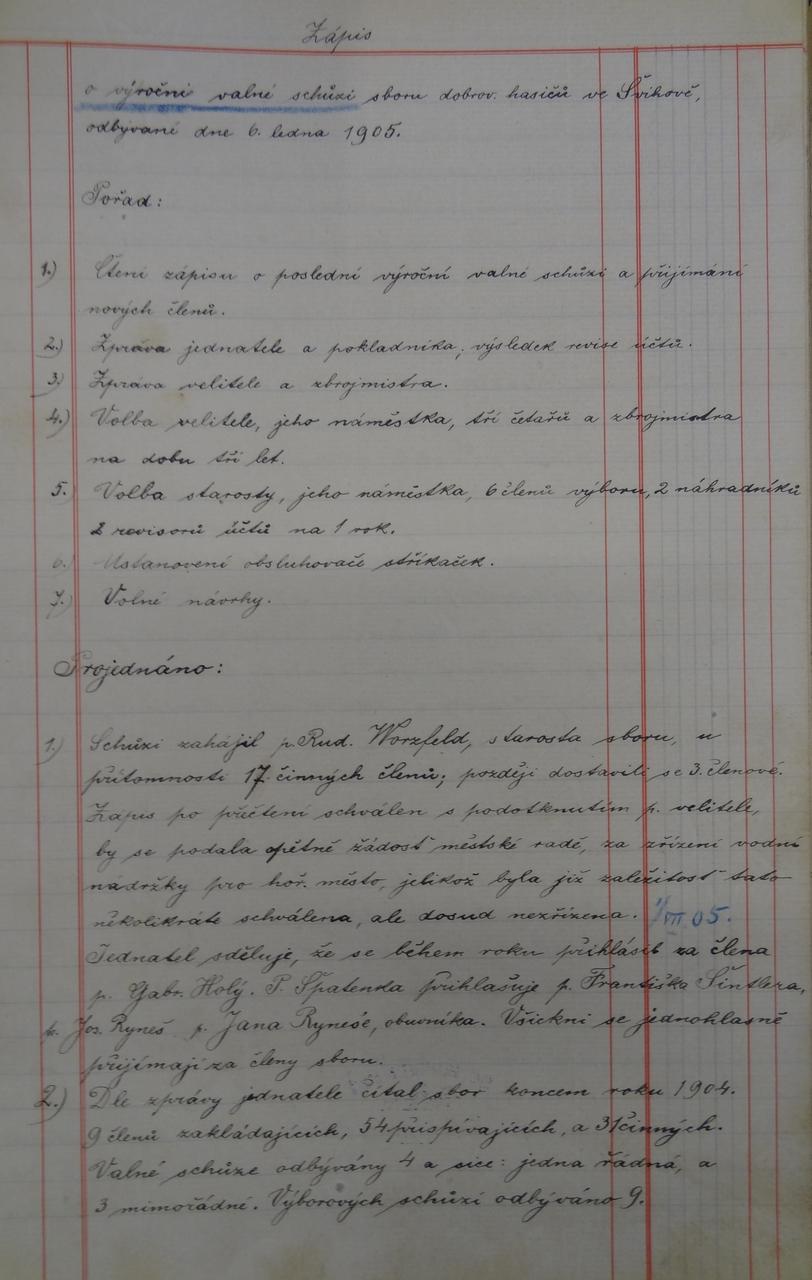 Zápis
o výroční valné schůzi sboru dobrov. hasičů ve Švihově,
odbývané dne 6. ledna 1905.
Pořad:
1.) Čtení zápisu o poslední výroční valné schůzi a přijímání
nových členů.
2.) Zpráva jednatele a pokladníka; výsledek revise účtů.
3.) Zpráva velitele a zbrojmistra.
4.) Volba velitele, jeho náměstka, tří četařů a zbrojmistra
na dobu tří let.
5.) Volba starosty, jeho náměstka, 6 členů výboru, 2 náhradníků
2 revisorů účtů na 1 rok.
6.) Ustanovení obsluhovače stříkaček.
7.) Volné návrhy.
Projednáno:
1.) Schůzi zahájil p. Rud. Worzfeld, starosta sboru, u
přítomnosti 17 činných členů; později dostavili se 3. členové.
Zápis po přečtení schválen s podotknutím p. velitele,
by se podala opětně žádost městské radě, za zřízení vodní
nádržky pro hoř. město, jelikož byla již založitost tato
několikráte schválena, ale dosud nezřízena. VII 05.
Jednatel sděluje, že se během roku přihlásil za člena
p. Gabr. Holý. P. Špatenka přihlašuje p. Františka Šintlera,
p. Jos. Ryneš p. Jana Ryneše, obuvníka. Všickni se jednohlasně
přijímají za členy sboru.
2.) Dle zprávy jednatele čítal sbor koncem roku 1904.
9 členů zakládajících, 54 přispívajících, a 31 činných.
Valné schůze odbývány 4 a sice: jedna řádná, a
3 mimořádné. Výborových schůzí odbýváno 9.